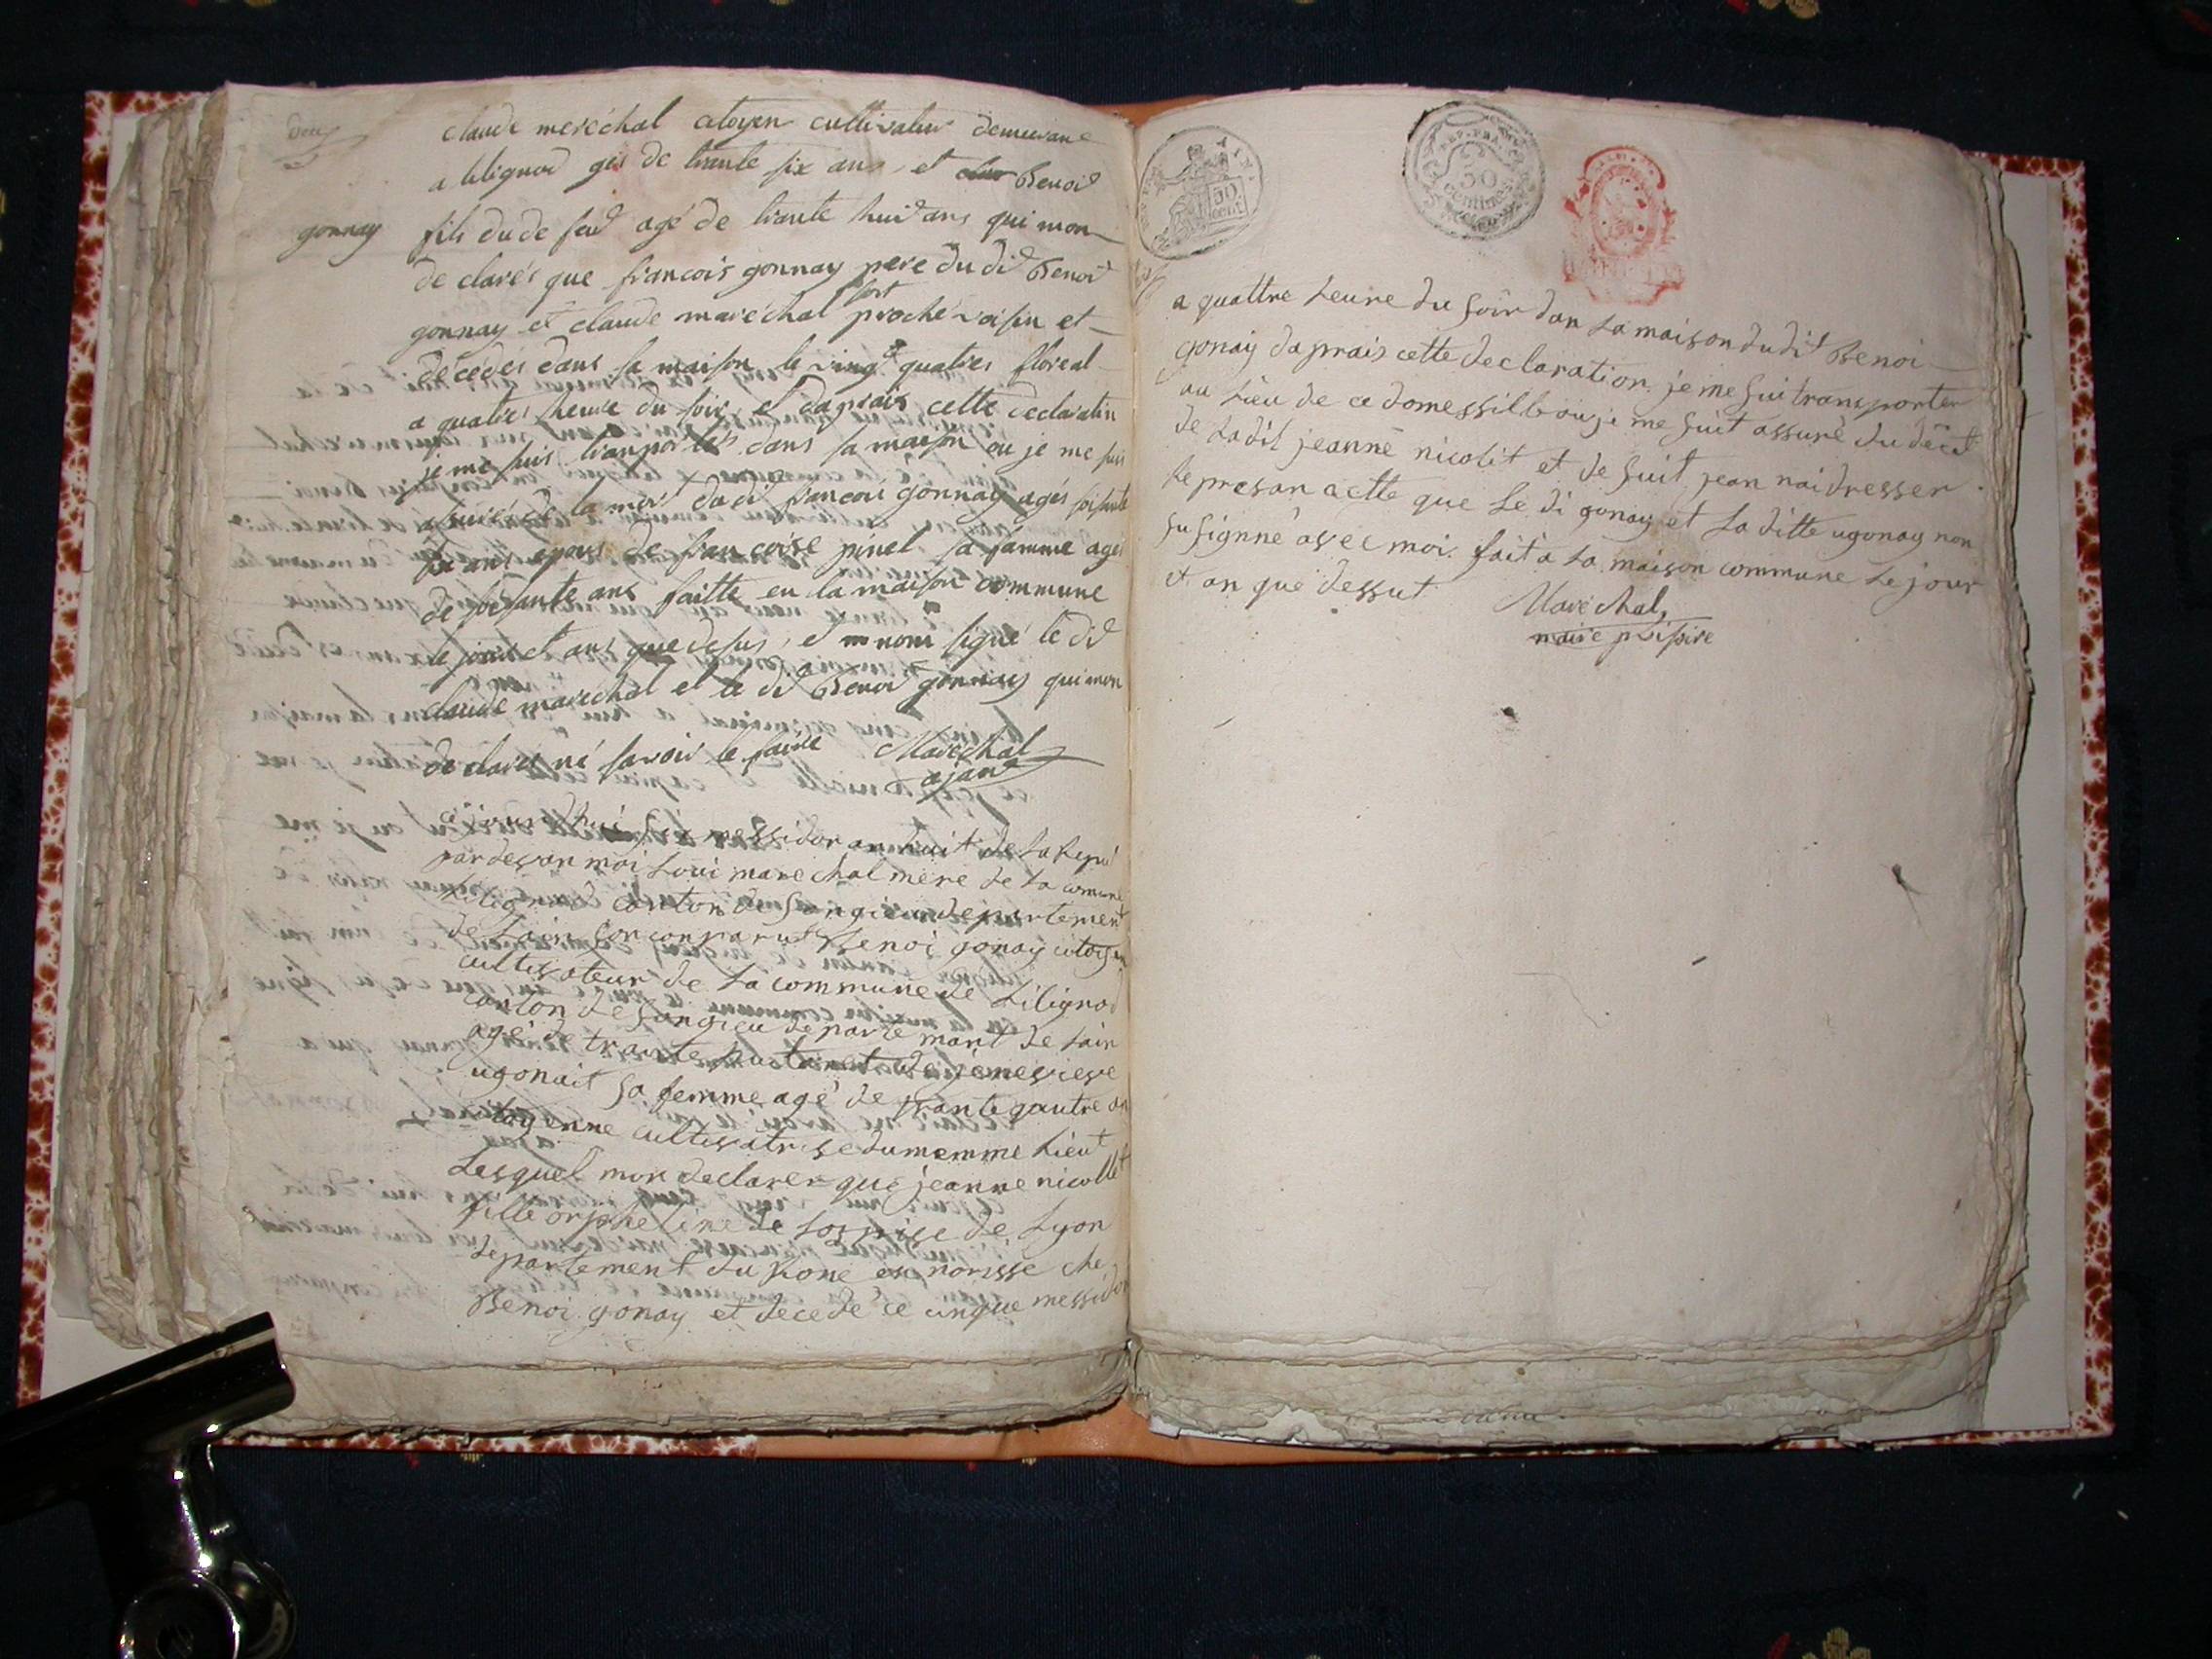 claude merechal citoyen cultivateur demeurant
a lilignod gés de trante six ans, et Benoid
gonnay fils dude feud agé de trante huid ans qui mon
de clarés que francois gonnay pere du did Benoid
gonnay et claude maréchal fort proche voisin et
décédés dans sa maison le vingt quatres floreal
a quatres heure du soir et daprais cette declaration
je me suis tranportés dans sa maison ou je me suis
de la mort dudil francois gonnay agés soisante
six ans epous de francoise pinel sa famme agés
de soisante ans faitte en la maison commune
le jour et ans que desus, et nom signé le did
claude marechal et le did Benoid gonnay qui mon
de clarés né savoir le faire Marechal
ajant
ajourdhui six messidor an huit de la Repu
pardevan moi Loui marechal mere de la comune
Lilignod canton de Songieu departement
de Lain con conparut Benoi gonay citoyen
cultivateur de la commune de Lilignod
canton de Songieu departemant de Lain
agé de trante huit de jenevieve
ugonait sa femme agé de trante gautre an
citoyenne cultivatrise du memme Lieut
Lesquel mon declarer que jeanne nicollet
fille orpheline de Lospise de Lyon
departement du Rone en norisse che
Benoi gonay et decedé ce cinque messidor
AIN
50
cent
REP. FRA.
50
centimes
a quattre Leure du soir dan La maison du dit Benoi
gonay daprais cette declaration je me sui transporter
au Lieu de ce domessille ou je me suit assuré du décet
de Ladit jeanne nicolit et de suit jean nai dresser
Le presan actte que Le di gonay et La ditte ugonay non
su signné avec moi. fait a La maison commune Le jour
et an que dessut Marechal,
maire